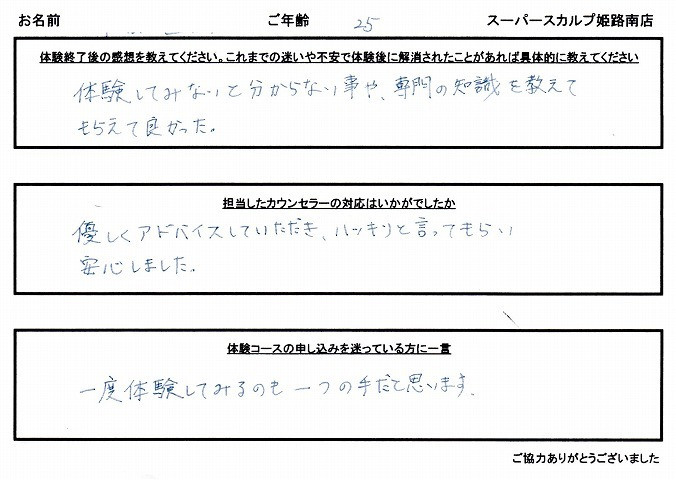 お名前 ご年齢 25 スーパースカルプ姫路南店
体験終了後の感想を教えてください。これまでの迷いや不安で体験後に解消されたことがあれば具体的に教えてください
体験してみないと分からない事や、専門の知識を教えて
もらえて良かった。
担当したカウンセラーの対応はいかがでしたか
優しくアドバイスしていただき、ハッキリと言ってもらい
安心しました。
体験コースの申し込みを迷っている方に一言
一度体験してみるのも一つの手だと思います。
ご協力ありがとうございました